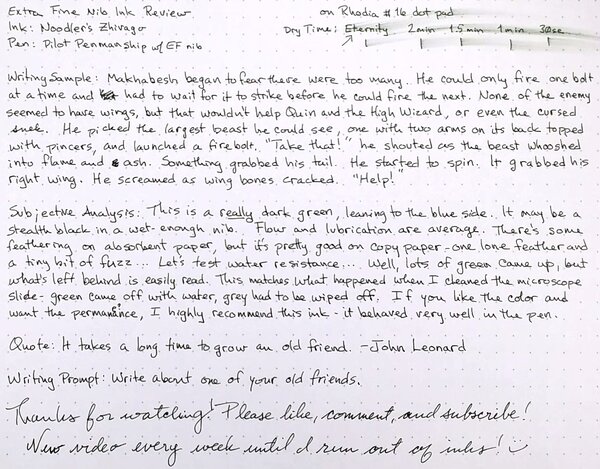 Extra Fine Nib Ink Review
on Rhodia #16 dot pad
Ink: Noodler's Zhivago
Dry Time: Eternity 2 min 1.5 min 1 min 30 sec
Pen: Pilot Penmanship w/ EF nib
Writing Sample: Makhabesh began to fear there were too many. He could only fire one bolt
at a time and had to wait for it to strike before he could fire the next. None of the enemy
seemed to have wings, but that wouldn't help Quin and the High Wizard, or even the cursed
snek. He picked the largest beast he could see, one with two arms on its back topped
with pincers, and launched a firebolt. "Take that!" he shouted as the beast whooshed
into flame and ash. Something grabbed his tail. He started to spin. It grabbed his
right wing. He screamed as wing bones cracked. "Help!"
Subjective Analysis: This is a really dark green, leaning to the blue side. It may be a
stealth black in a wet-enough nib. Flow and lubrication are average. There's some
feathering on absorbent paper, but it's pretty good on copy paper - one lone feather and
a tiny bit of fuzz.... Let's test water resistance.... Well, lots of green came up, but
what's left behind is easily read. This matches what happened when I cleaned the microscope
slide - green came off with water, grey had to be wiped off. If you like the color and
want the permanence, I highly recommend this ink - it behaved very well in the pen.
Quote: It takes a long time to grow an old friend. -John Leonard
Writing Prompt: Write about one of your old friends.
Thanks for watching! Please like, comment, and subscribe!
New video every week until I run out of inks! :)